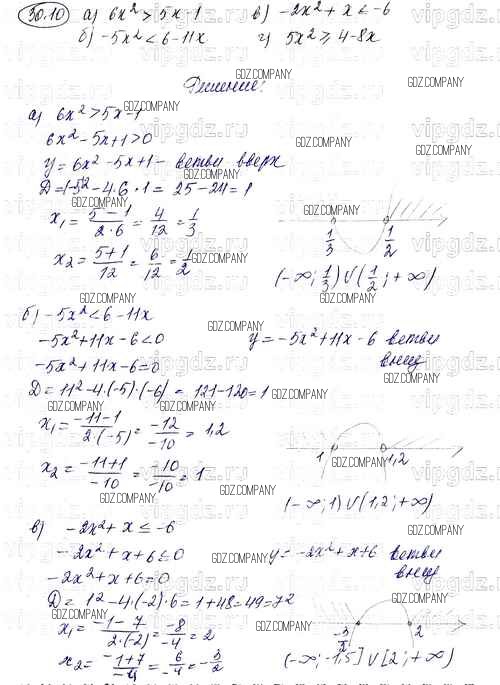 30.10 а) 6x² > 5x-1 в) -2x² + x ≤ -6
б) -5x² < 6-11x г) 5x² ≥ 4-8x
Решение:
GDZ.COMPANY
а) 6x² > 5x-1
6x² - 5x + 1 > 0
y = 6x² - 5x + 1 - ветви вверх
D = (-5)² - 4·6·1 = 25 - 24 = 1
x₁ = (5-1)/(2·6) = 4/12 = 1/3
x₂ = (5+1)/12 = 6/12 = 1/2
1/3 1/2
(-∞; 1/3) ∪ (1/2; +∞)
б) -5x² < 6-11x
-5x² + 11x - 6 < 0 y = -5x² + 11x - 6 ветви
вниз
-5x² + 11x - 6 = 0
D = 11² - 4·(-5)·(-6) = 121 - 120 = 1
x₁ = (-11-1)/(2·(-5)) = -12/-10 = 1,2
x₂ = (-11+1)/-10 = -10/-10 = 1
1 1,2
(-∞; 1) ∪ (1,2; +∞)
в) -2x² + x ≤ -6
-2x² + x + 6 ≤ 0 y = -2x² + x + 6 ветви
вниз
-2x² + x + 6 = 0
D = 1² - 4·(-2)·6 = 1 + 48 = 49 = 7²
x₁ = (-1-7)/(2·(-2)) = -8/-4 = 2
x₂ = (-1+7)/-4 = 6/-4 = -3/2
-3/2 2
(-∞; -1,5] ∪ [2; +∞)
vipgdz.ru